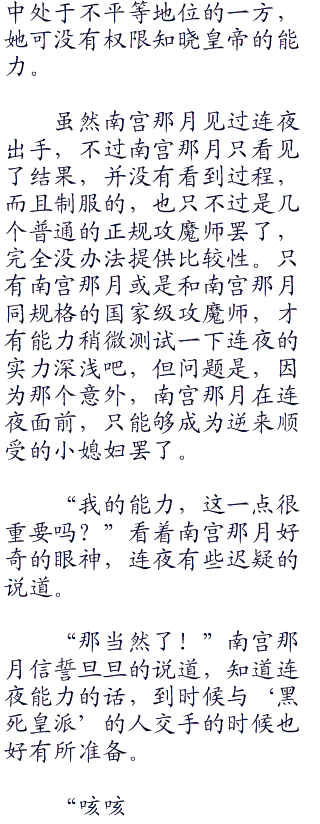 中处于不平等地位的一方，
她可没有权限知晓皇帝的能
力。
虽然南宫那月见过连夜
出手，不过南宫那月只看见
了结果，并没有看到过程，
而且制服的，也只不过是几
个普通的正规攻魔师罢了，
完全没办法提供比较性。只
有南宫那月或是和南宫那月
同规格的国家级攻魔师，才
有能力稍微测试一下连夜的
实力深浅吧，但问题是，因
为那个意外，南宫那月在连
夜面前，只能够成为逆来顺
受的小媳妇罢了。
“我的能力，这一点很
重要吗？”看着南宫那月好
奇的眼神，连夜有些迟疑的
说道。
“那当然了！”南宫那
月信誓旦旦的说道，知道连
夜能力的话，到时候与‘黑
死皇派’的人交手的时候也
好有所准备。
“咳咳